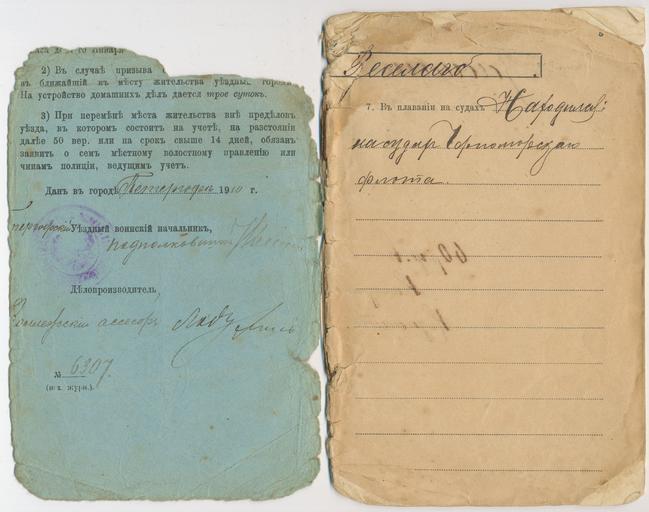 2) Въ случаѣ призыва
въ ближайшій къ мѣсту жительства уѣздный городъ
На устройство домашнихъ дѣлъ дается трое сутокъ.
3) При перемѣнѣ мѣста жительства внѣ предѣловъ
уѣзда, въ которомъ состоитъ на учетѣ, на разстояніи
далѣе 50 вер. или на срокъ свыше 14 дней, обязанъ
заявить о семъ мѣстному волостному правленію или
чинамъ полиціи, ведущимъ учетъ.
Данъ въ городѣ Петергофѣ 1910 г.
Уѣздный воинскій начальникъ,
подполковникъ
Дѣлопроизводитель
ассесоръ
№ 6307
(исх. журн.).
Веселаго
7. Въ плаваніи на судахъ Находился
на судахъ Черноморскаго
флота.